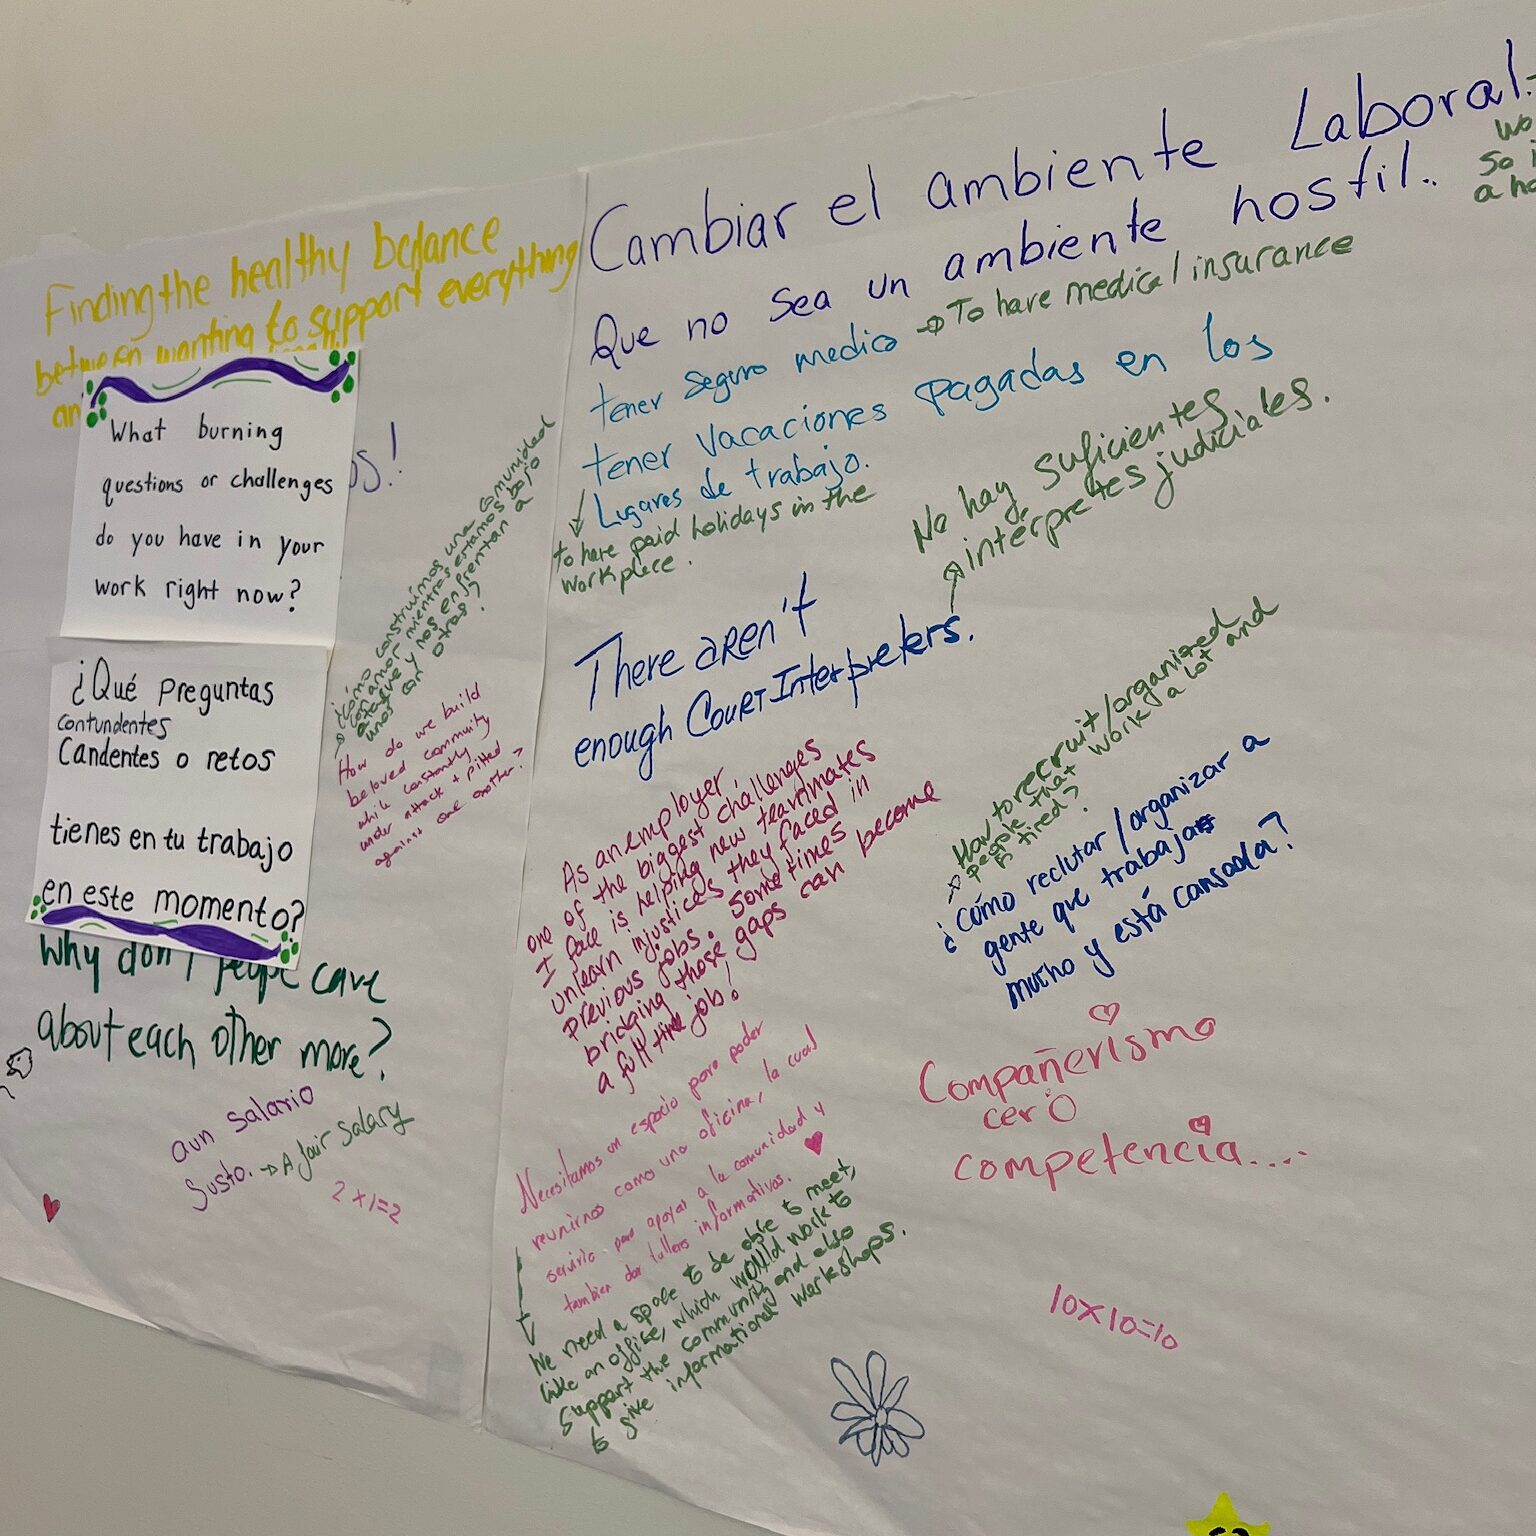 Finding the healthy balance
between wanting to support everything
an
os!
What burning
questions or challenges
do you have in your
work right now?
¿Qué preguntas
contundentes
Candentes o retos
tienes en tu trabajo
en este momento?
¿Cómo construimos una comunidad
con amor mientras estamos bajo
ataque y nos enfrentan a
unos con otros?
How do we build
beloved community
while constantly
under attack + pitted
against one another?
Why don't people care
about each other more?
aun Salario
Justo. → A fair salary
2x1=2
Cambiar el ambiente Laboral.
Que no sea un ambiente hostil..
wo
So i
a ho
tener seguro medico → To have medical insurance
tener vacaciones pagadas en los
Lugares de trabajo.
to have paid holidays in the
workplace.
No hay suficientes
intérpretes judiciales.
There aren't
enough Court Interpreters.
As an employer,
one of the biggest challenges
I face is helping new teammates
unlearn injustices they faced in
previous jobs. Sometimes
bridging those gaps can become
a full time job!
How to recruit/organized
people that work a lot and
is tired?
¿Cómo reclutar/organizar a
gente que trabaja
mucho y está cansada?
Necesitamos un espacio para poder
reunirnos como una oficina, la cual
serviria para apoyar a la comunidad y
tambien dar talleres informativos.
We need a space to be able to meet,
like an office, which would work to
support the community and also
to give informational workshops.
Compañerismo
cerO
competencia....
10x10=10